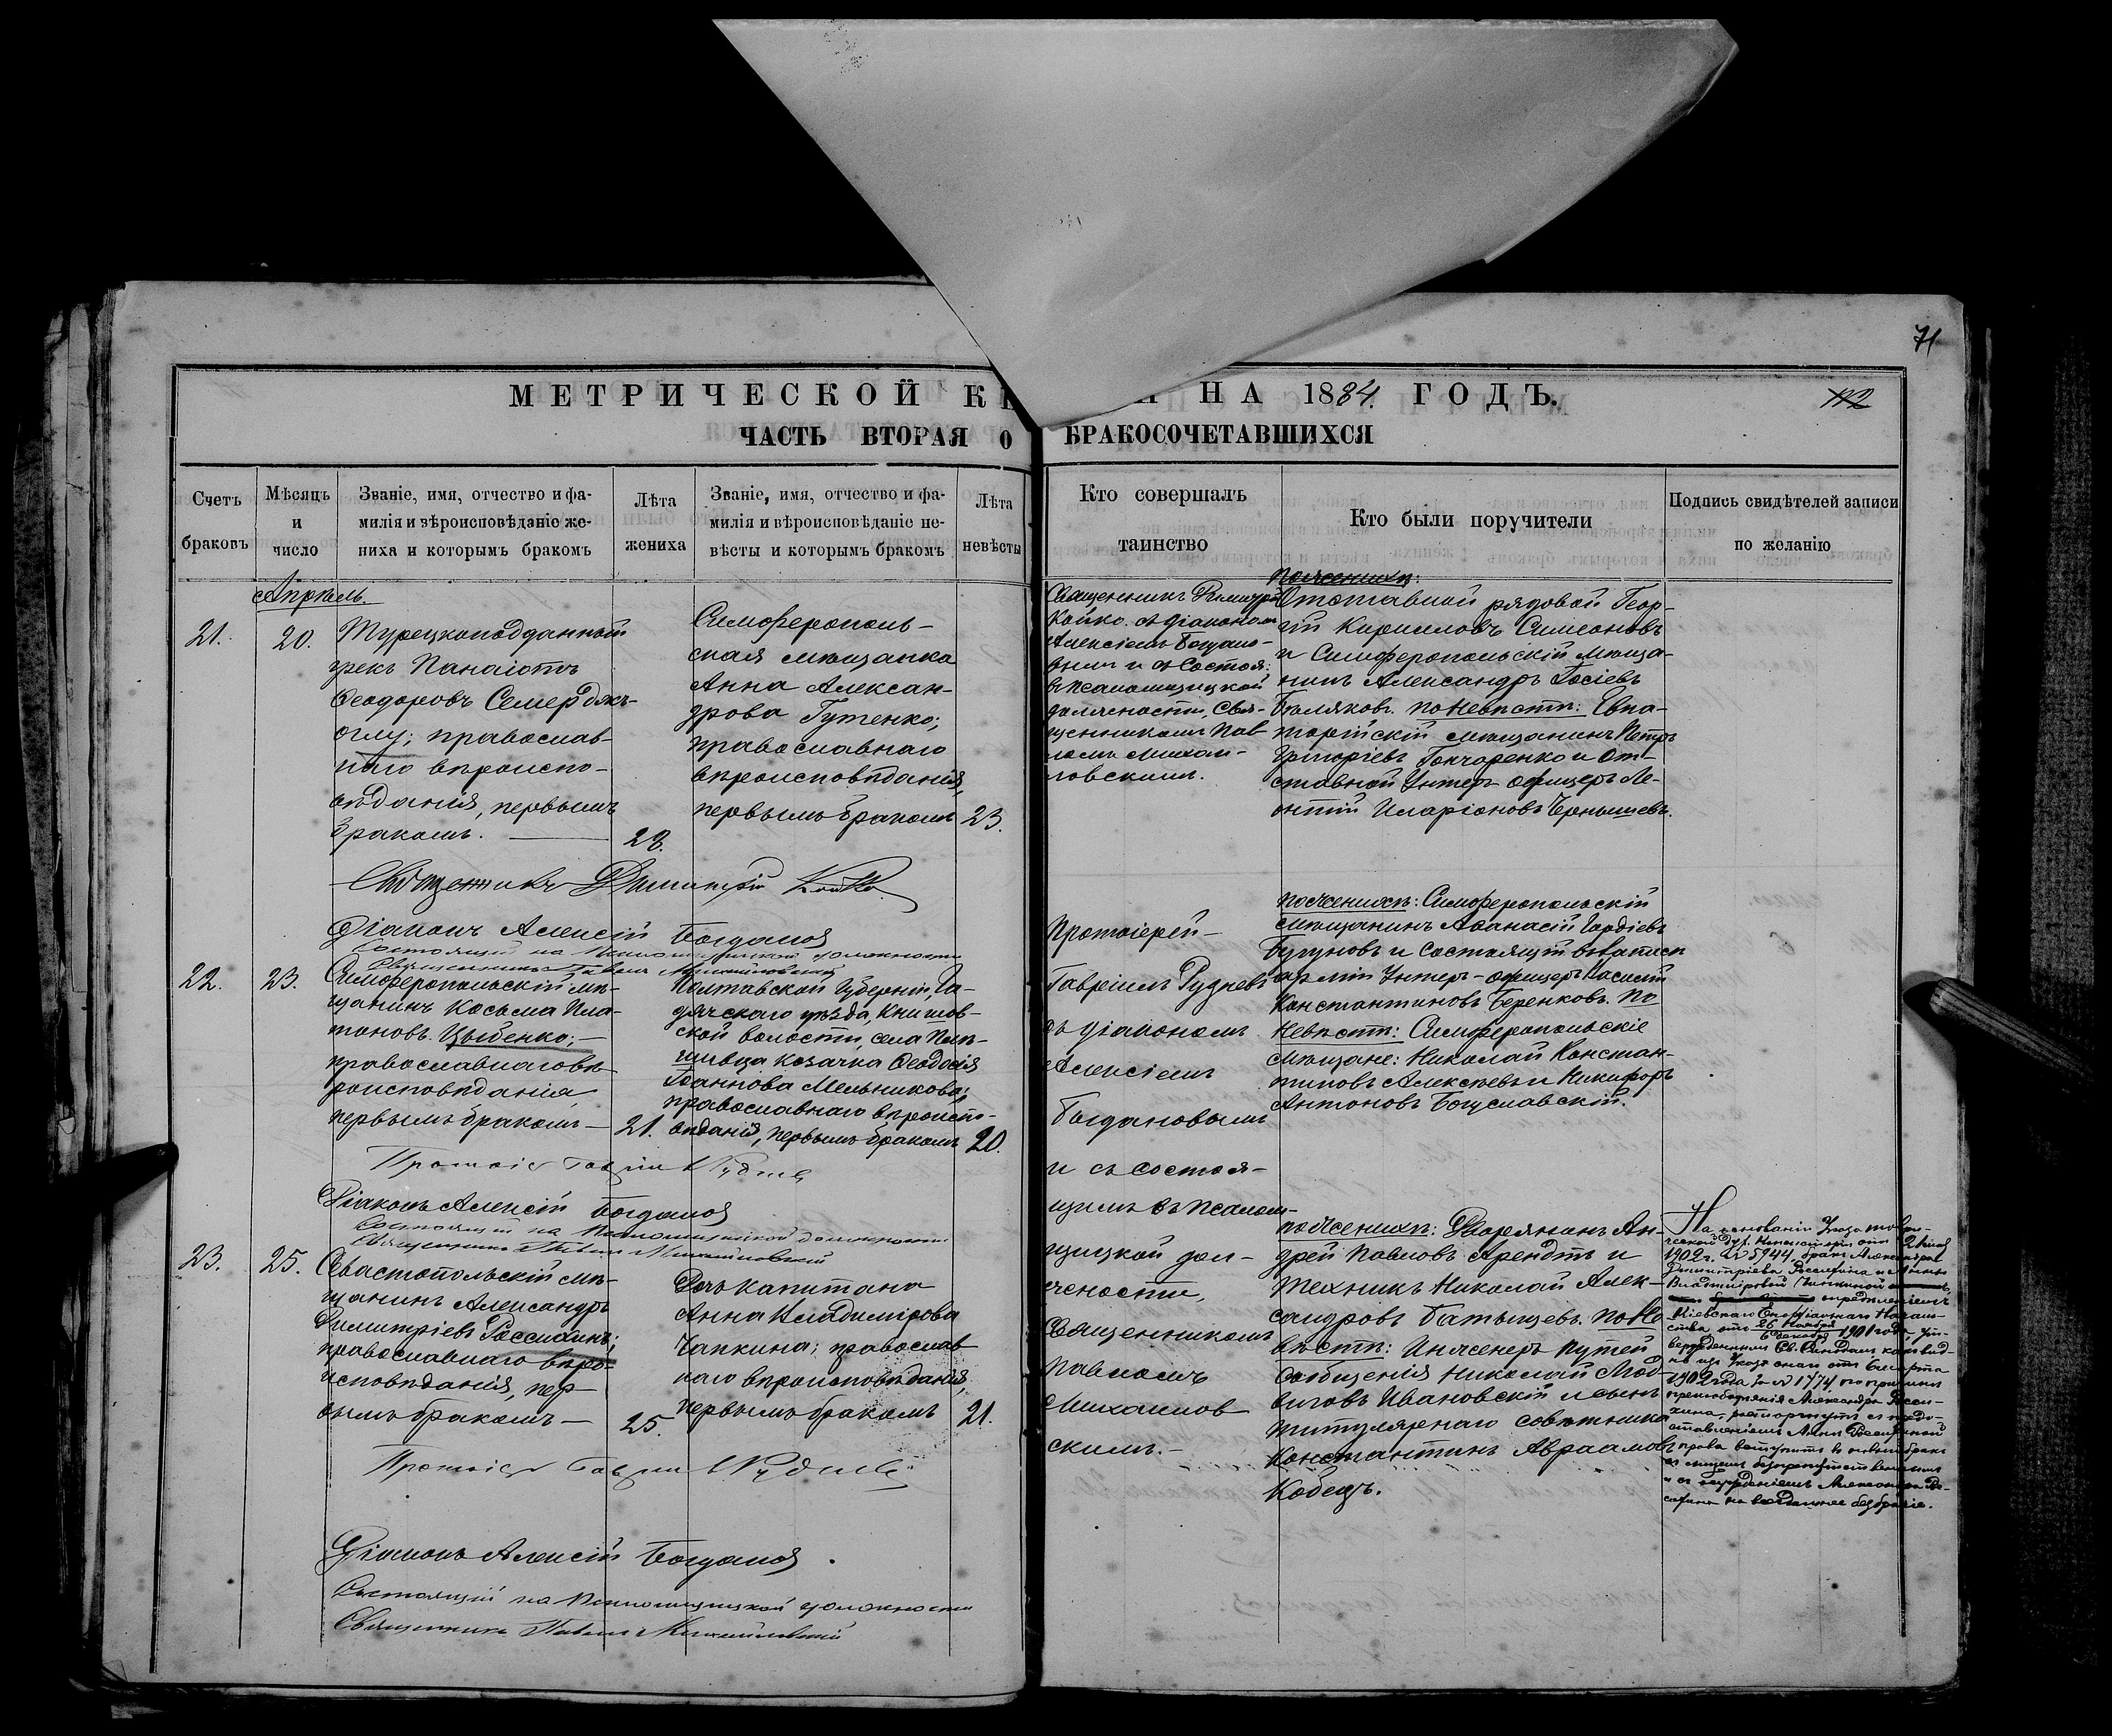 71
МЕТРИЧЕСКОЙ КН НА 1884. ГОДЪ.
112
ЧАСТЬ ВТОРАЯ О БРАКОСОЧЕТАВШИХСЯ
Счетъ браковъ
Мѣсяцъ и число
Званіе, имя, отчество и фа-
милія и вѣроисповѣданіе же-
ниха и которымъ бракомъ
Лѣта жениха
Званіе, имя, отчество и фа-
милія и вѣроисповѣданіе не-
вѣсты и которымъ бракомъ
Лѣта невѣсты
Кто совершалъ
таинство
Кто были поручители
Подпись свидѣтелей записи
по желанію
Апрѣль.
21.
20.
Турецкоподданный
грекъ Панаіотъ
Ѳеодоровъ Семерджъ-
оглу; православ-
наго вѣроиспо-
вѣданія, первымъ
бракомъ.
28.
Симферополь-
ская мѣщанка
Анна Алексан-
дрова Гутенко;
православнаго
вѣроисповѣданія,
первымъ бракомъ
23.
Священникъ Димитрій
Койко съ діакономъ
Алексіемъ Богдано-
вымъ и съ состоя.
въ псаломщицкой
должности, Свя-
щенникомъ Пав-
ломъ Михаи-
ловскимъ.
По женихѣ:
Отставной рядовой Геор-
гій Кирилловъ Симеоновъ
и Симферопольскій мѣща-
нинъ Александръ Іосіевъ
Бѣляковъ. По невѣстѣ: Евпа-
торійскій мѣщанинъ Петръ
Григоріевъ Гончаренко и От-
ставной Унтеръ-офицеръ Ле-
онтій Иларіоновъ Чернышевъ.
Священникъ Димитрій Койко
Діаконъ Алексій Богданов
Состоящій на Псаломщицкой должности
Священникъ Павелъ Михайловскій
22.
23.
Симферопольскій мѣ-
щанинъ Косьма Пла-
тоновъ Цыбенко;
православнаго вѣ-
роисповѣданія
первымъ бракомъ
21.
Полтавской Губерніи, Га-
дячскаго уѣзда,
ской волости, села
козачка Ѳеодосія
Іоаннова Мельникова;
православнаго вѣроиспо-
вѣданія, первымъ бракомъ
20.
Протоіерей
Гавріилъ Рудневъ
съ діакономъ
Алексіемъ
Богдановымъ
и съ состоя-
щимъ въ псалом-
щицкой дол-
жности,
Священникомъ
Павломъ
Михаилов
скимъ.
По женихѣ: Симферопольскій
мѣщанинъ Аѳанасій Гордіевъ
Бугуновъ и состоящій въ запасѣ
арміи Унтеръ-офицеръ Василій
Константиновъ Беренковъ. По
невѣстѣ: Симферопольскіе
мѣщане: Николай Констан-
тиновъ Алексѣевъ и Никифоръ
Антоновъ Богуславскій.
Протоіер Гавріилъ Руднев
Діаконъ Алексій Богданов
Состоящій на Псаломщицкой должности
Священникъ Павелъ Михайловскій
23.
25.
Севастопольскій мѣ-
щанинъ Александръ
Димитріевъ Россихинъ;
православнаго вѣро-
исповѣданія, пер-
вымъ бракомъ
25.
Дочь капитана
Анна Владимірова
Чапкина; православ
наго вѣроисповѣданія,
первымъ бракомъ
21.
По женихѣ: Дворянинъ Ан-
дрей Павловъ Арендтъ и
техникъ Николай Алек-
сандровъ Батыщевъ. По не-
вѣстѣ: Инженеръ путей
сообщенія Николай Люд-
виговъ Ивановскій и сынъ
титулярнаго совѣтника
Константинъ Авраамовъ
Кобецъ.
На основаніи Указа Таври-
ческой Дух. Консисторіи отъ 2 Іюля
1902 г. за № 5944, бракъ Александра
Димитріева Россихина и Анны
Владиміровой Чапкиной
опредѣленіемъ
Кіевскаго Епархіальнаго Началь-
ства, отъ 26 Ноября
6 декабря 1901 года, ут-
вержденнымъ Св. Синодомъ, какъ вид-
но изъ Указа онаго отъ марта
1902 года за № 1774, по причинѣ
прелюбодѣянія Александра Росси-
хина, расторгнутъ съ предо-
ставленіемъ Аннѣ Россихиной
права вступить въ новый бракъ
съ лицемъ безпрепятственнымъ
и съ осужденіемъ Александра Рос-
сихина на всегдашнее безбрачіе.
Протоіер Гавріилъ Руднев
Діаконъ Алексій Богданов
Состоящій на Псаломщицкой должности
Священникъ Павелъ Михайловскій